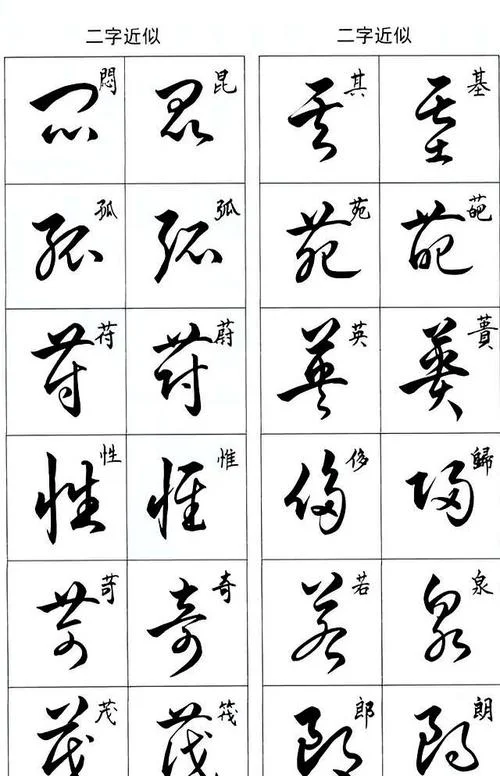 二字近似 二字近似
悶 昆 其 基
孤 弧 苑 葩
苻 蔚 英 蕢
性 惟 侈 歸
苛 奇 若 泉
茂 筏 郎 朗